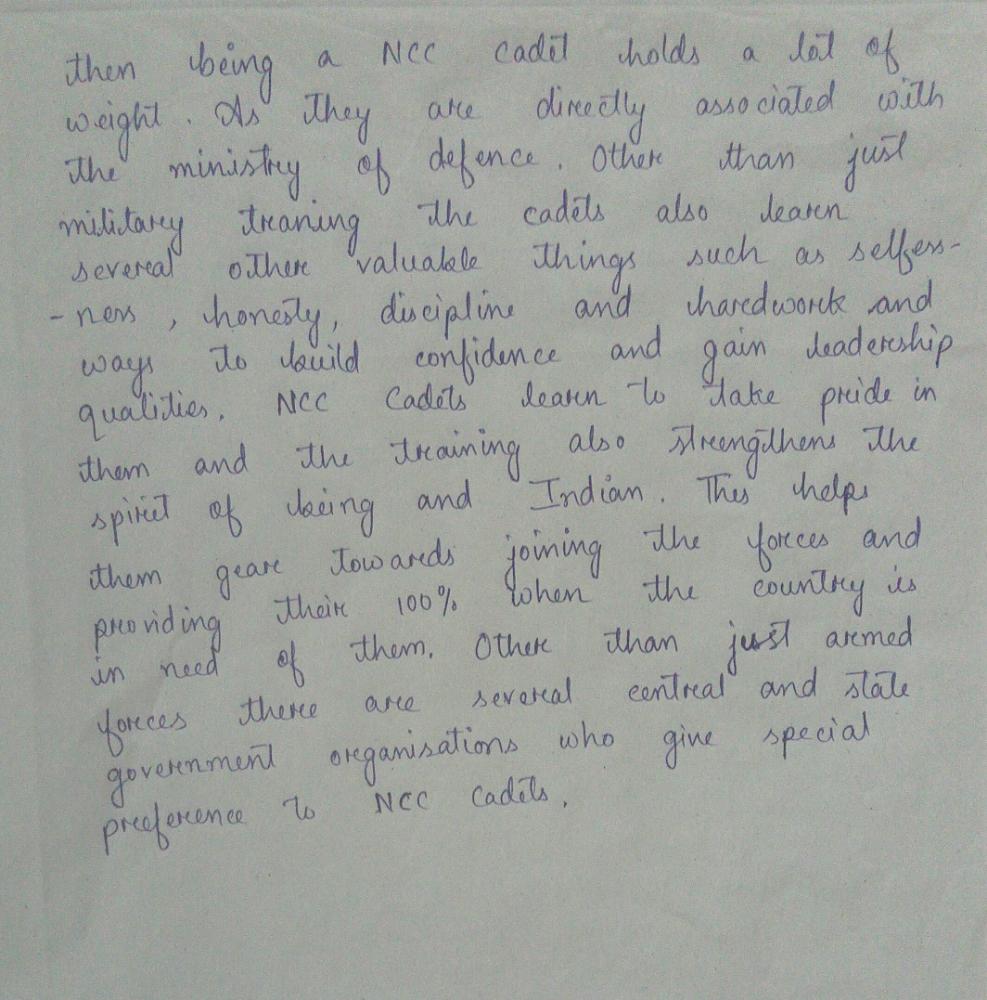 then being a NCC cadet holds a lot of
weight. As they are directly associated with
the ministry of defence. Other than just
military traning the cadets also learn
several other valuable things such as selfess-
-ness, honesty, discipline and hardwork and
ways to build confidence and gain leadership
qualities. NCC Cadets learn to take pride in
them and the training also strengthens the
spirit of being and Indian. This helps
them gear towards joining the forces and
providing their 100% when the country is
in need of them. Other than just armed
forces there are several central and state
government organisations who give special
preference to NCC Cadets.